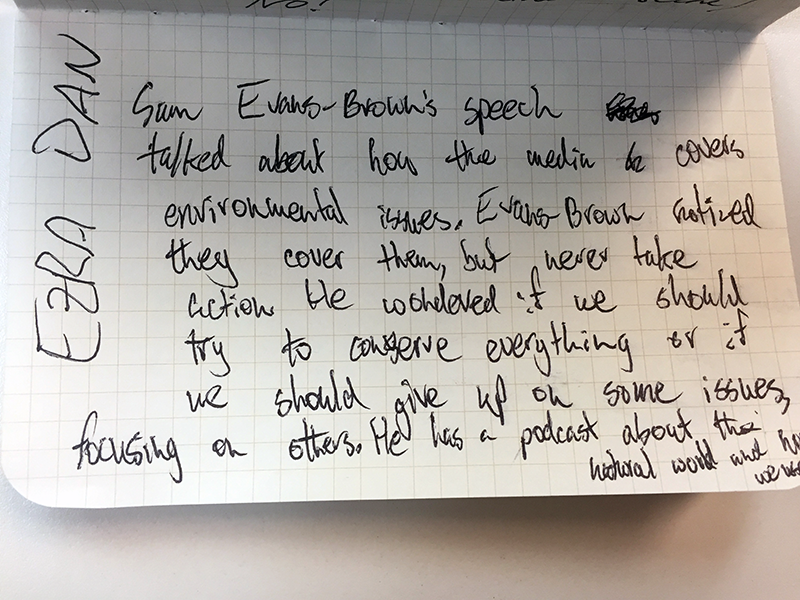 EZRA DAN
Sam Evans-Brown's speech
talked about how the media covers
environmental issues. Evans-Brown notized
they cover them, but never take
action. He wondered if we should
try to conserve everything or if
we should give up on some issues,
focusing on others. He has a podcast about the
natural world and how
we